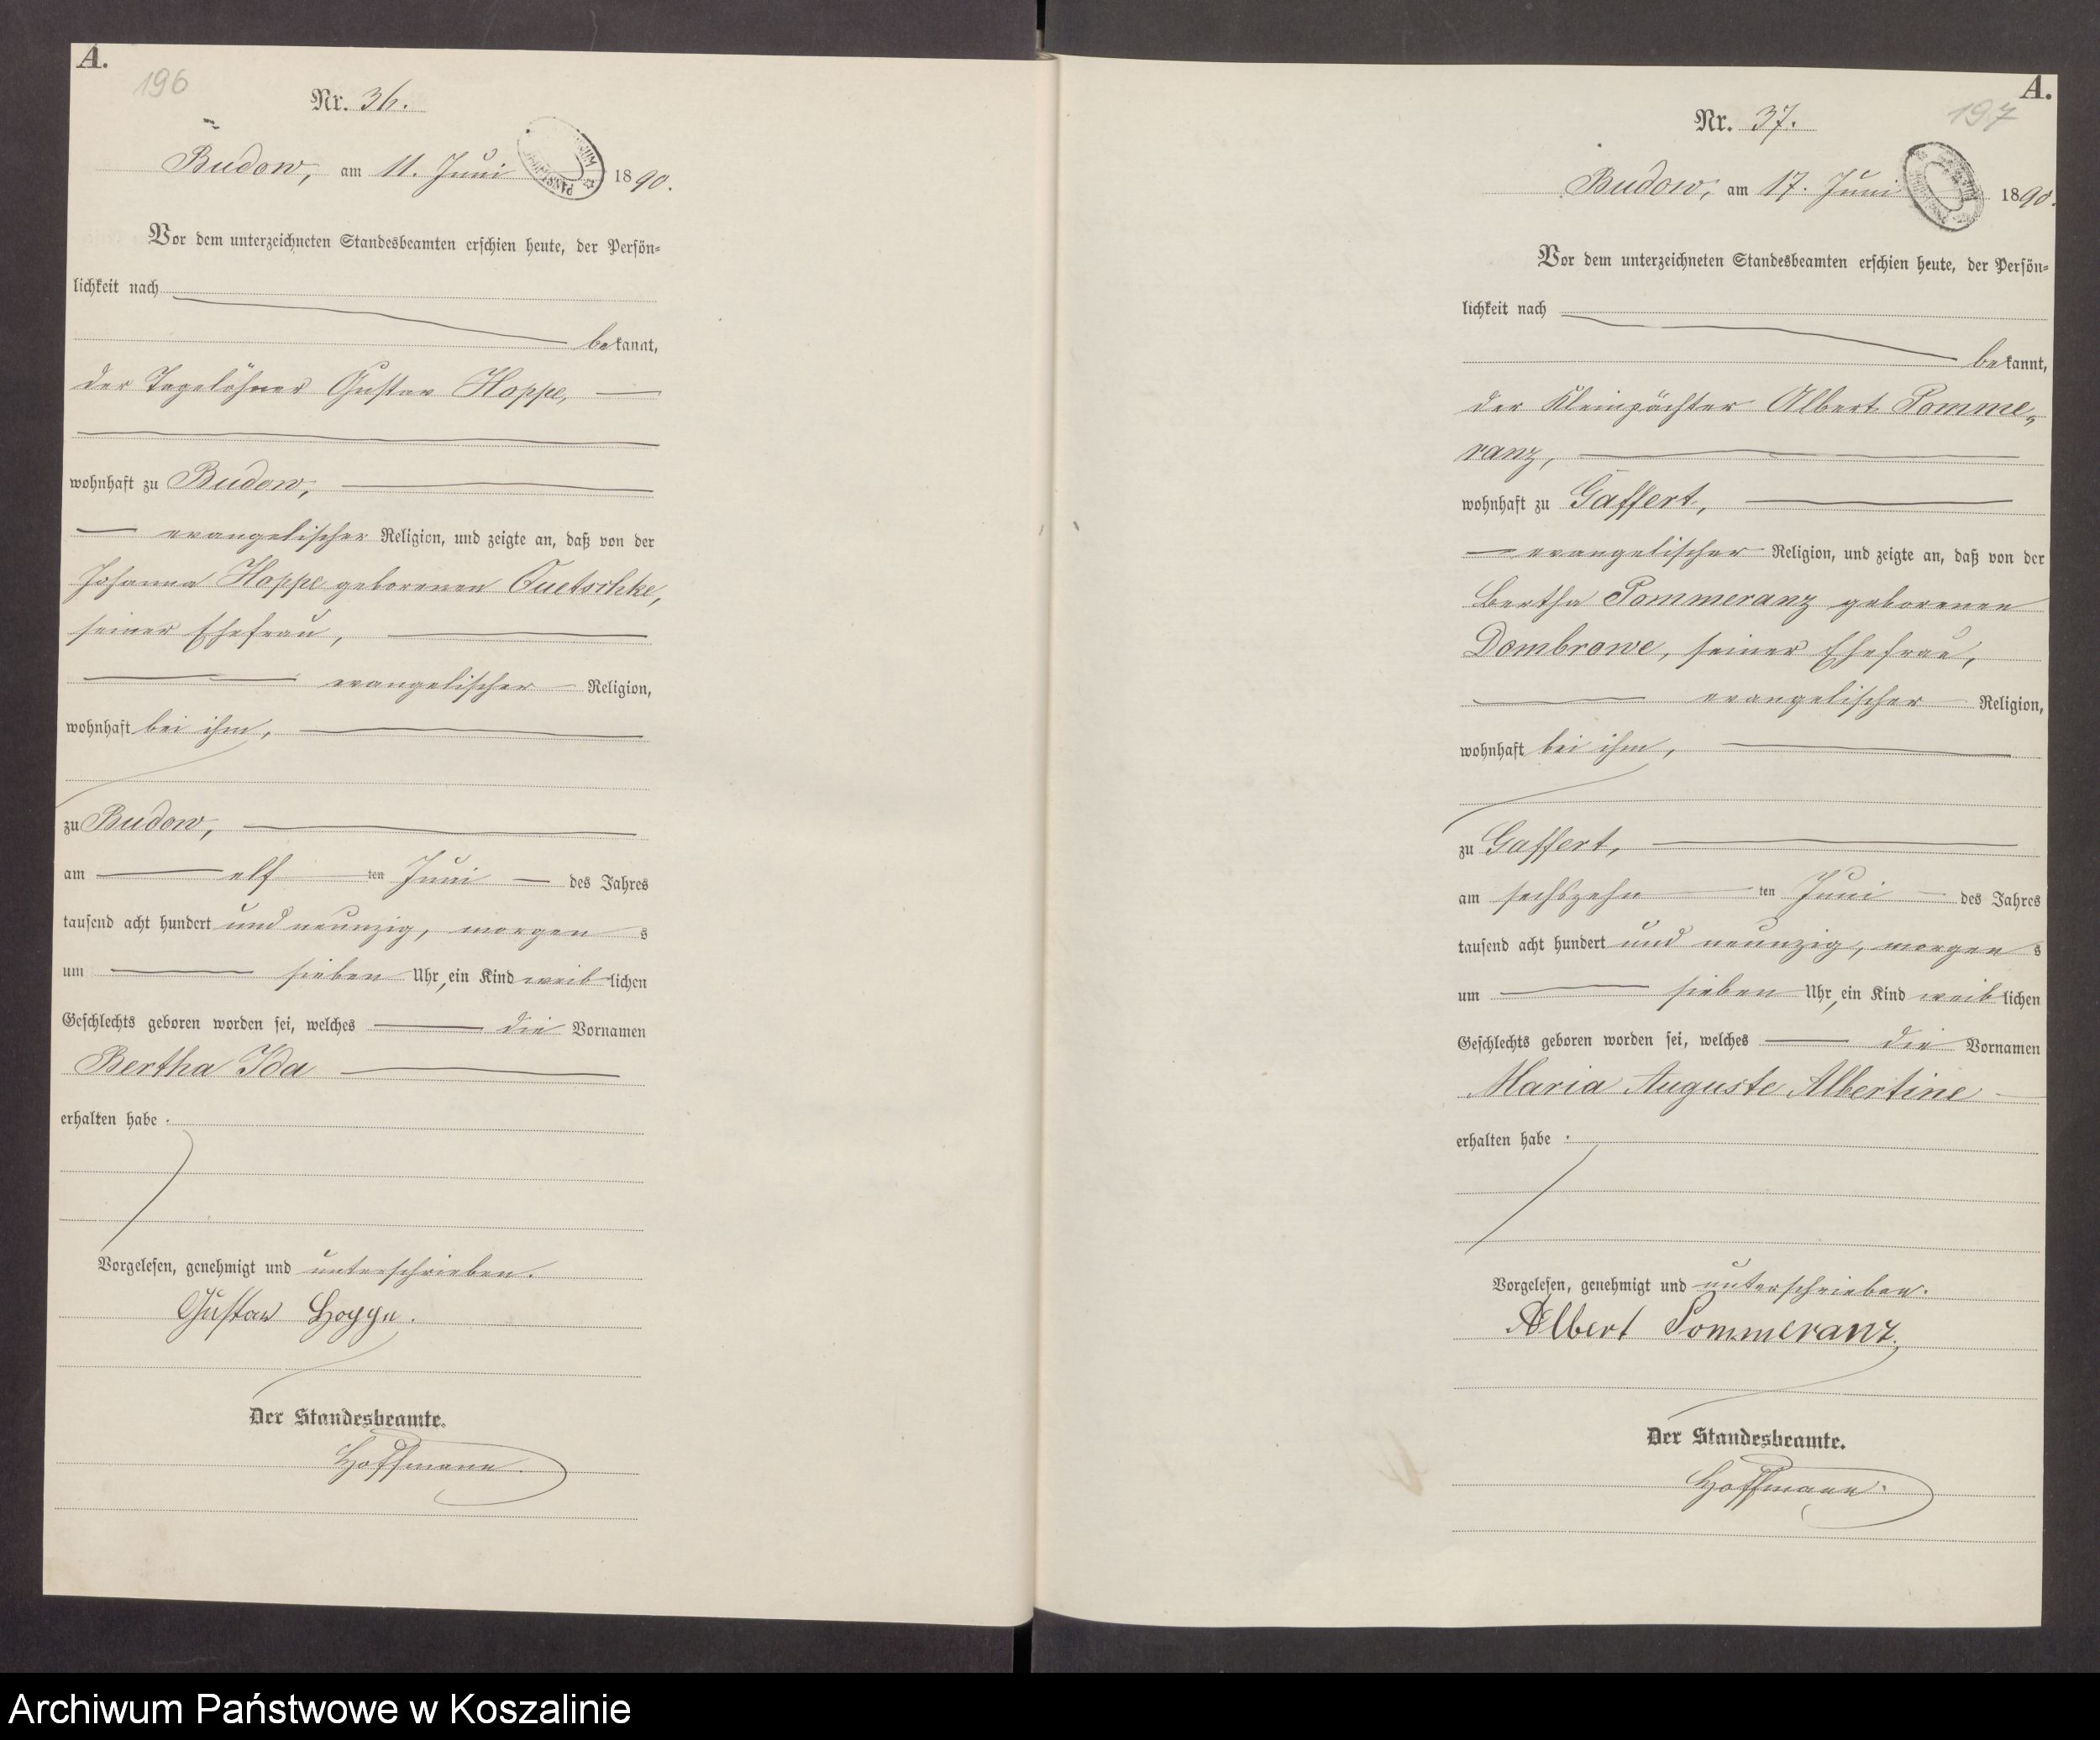 A.
196
Nr. 36.
Budow, am 11. Juni 1890.
Vor dem unterzeichneten Standesbeamten erschien heute, der Persön=
lichkeit nach
bekannt,
der Tagelöhner Gustav Hoppe,
wohnhaft zu Budow,
evangelischer Religion, und zeigte an, daß von der
Johanna Hoppe geborenen Quetschke,
seiner Ehefrau,
evangelischer Religion,
wohnhaft bei ihm,
zu Budow,
am elf ten Juni des Jahres
tausend acht hundert und neunzig, morgen s
um sieben Uhr, ein Kind weiblichen
Geschlechts geboren worden sei, welches die Vornamen
Bertha Ida
erhalten habe.
Vorgelesen, genehmigt und unterschrieben.
Gustav Hoppe.
Der Standesbeamte.
Hoffmann.
A.
197
Nr. 37.
Budow, am 17. Juni 1890.
Vor dem unterzeichneten Standesbeamten erschien heute, der Persön=
lichkeit nach
bekannt,
der Kleinpächter Albert Pomme=
ranz,
wohnhaft zu Gaffert,
evangelischer Religion, und zeigte an, daß von der
Bertha Pommeranz geborenen
Dombrowe, seiner Ehefrau,
evangelischer Religion,
wohnhaft bei ihm,
zu Gaffert,
am sechszehn ten Juni des Jahres
tausend acht hundert und neunzig, morgen s
um sieben Uhr, ein Kind weiblichen
Geschlechts geboren worden sei, welches die Vornamen
Maria Auguste Albertine
erhalten habe.
Vorgelesen, genehmigt und unterschrieben.
Albert Pommeranz.
Der Standesbeamte.
Hoffmann.
Archiwum Państwowe w Koszalinie